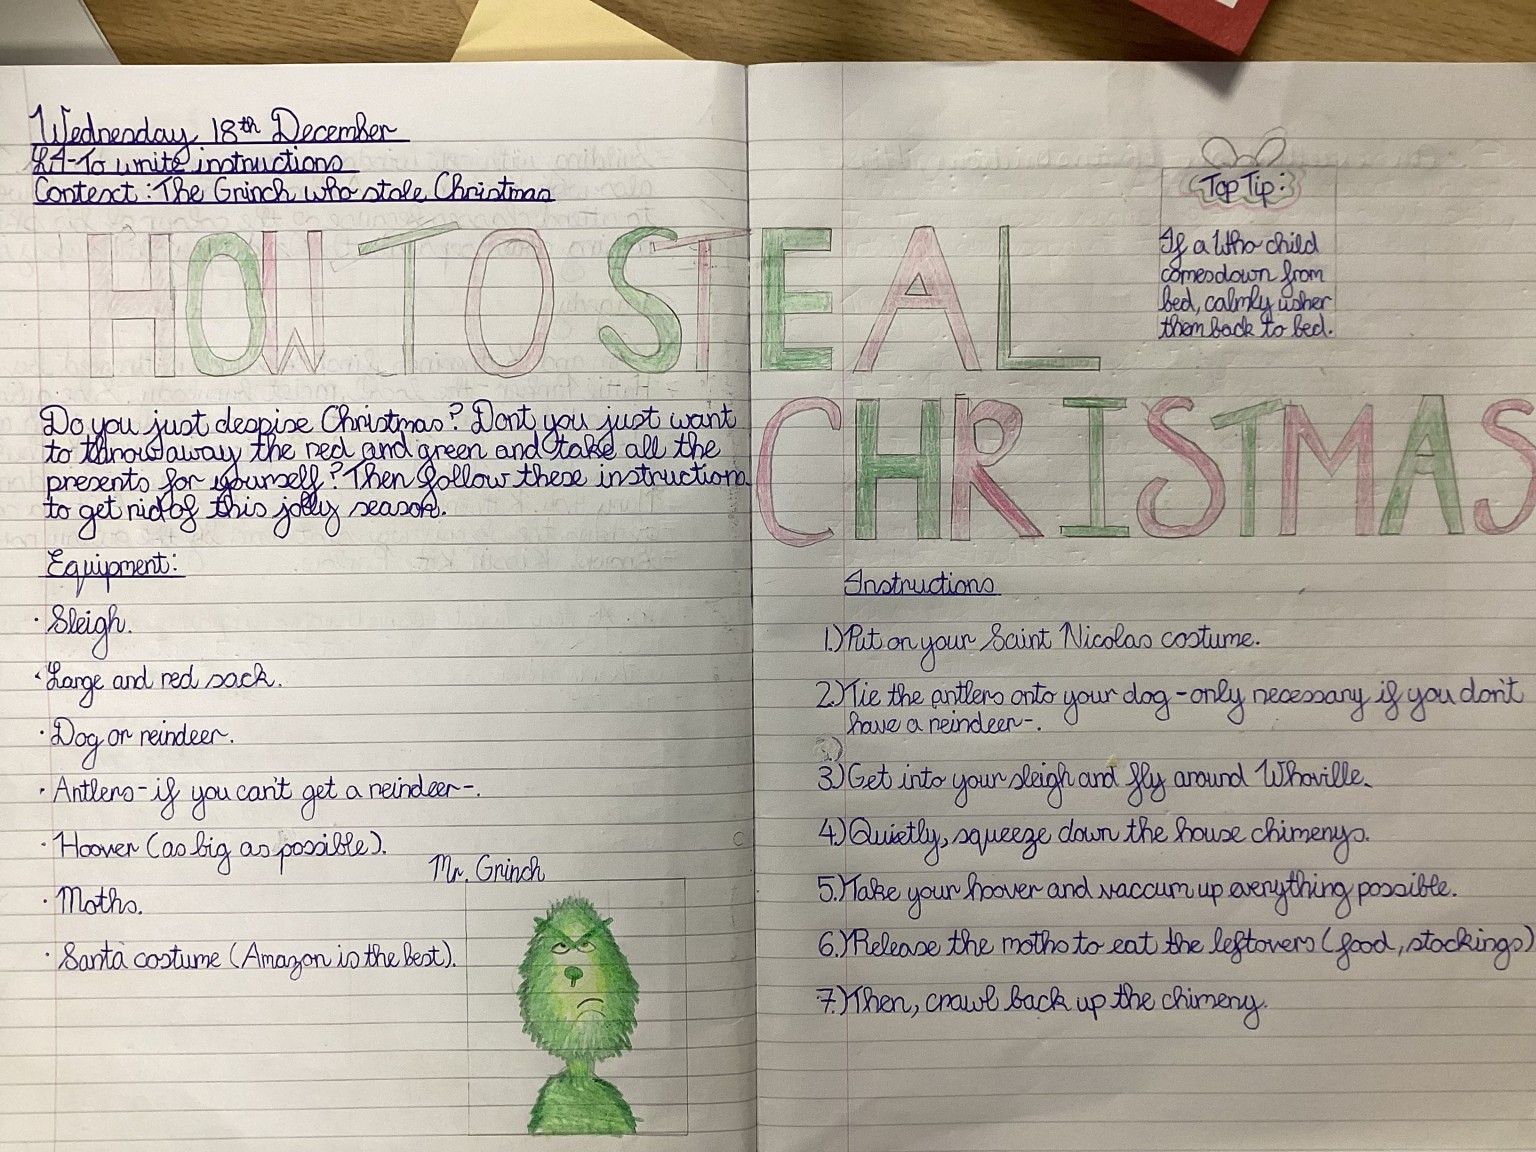 Wednesday 18th December
LA-To write instructions
Context: The Grinch who stole Christmas
HOW TO STEAL
CHRISTMAS
Do you just despise Christmas? Dont you just want
to throw away the red and green and take all the
presents for yourself? Then follow these instructions
to get rid of this jolly season.
Equipment:
· Sleigh.
· Large and red sack.
· Dog or reindeer.
· Antlers-if you can't get a reindeer-.
· Hoover (as big as possible).
· Moths.
· Santa costume (Amazon is the best).
Mr. Grinch
Top Tip:
If a Who child
comes down from
bed, calmly usher
them back to bed.
Instructions
1.) Put on your Saint Nicolas costume.
2.) Tie the antlers onto your dog -only necessary if you don't
have a reindeer-.
3.) Get into your sleigh and fly around Whoville.
4.) Quietly, squeeze down the house chimenys.
5.) Take your hoover and vaccum up everything possible.
6.) Release the moths to eat the leftovers (food, stockings)
7.) Then, crawl back up the chimeny.